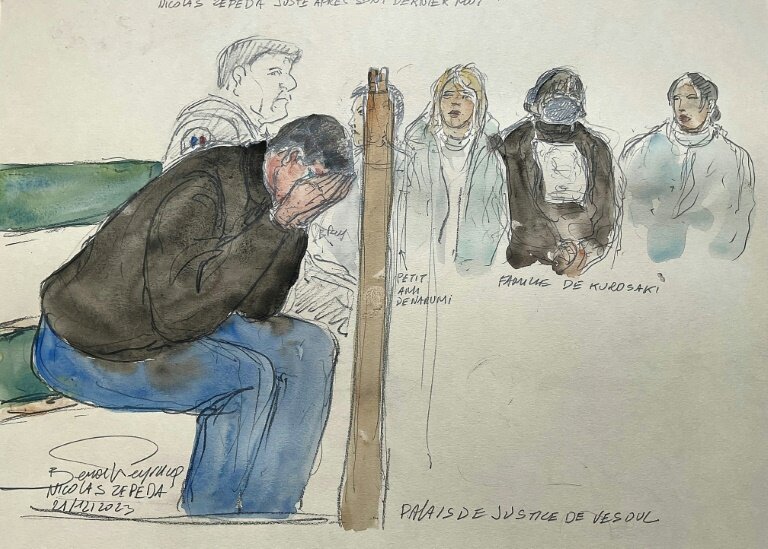 NICOLAS ZEPEDA JUSTE APRES SON DERNIER MOT
PETIT
AMI
DE NARUMI
FAMILLE DE KUROSAKI
Benoit Peyrucq
NICOLAS ZEPEDA
21/12/2023
PALAIS DE JUSTICE DE VESOUL